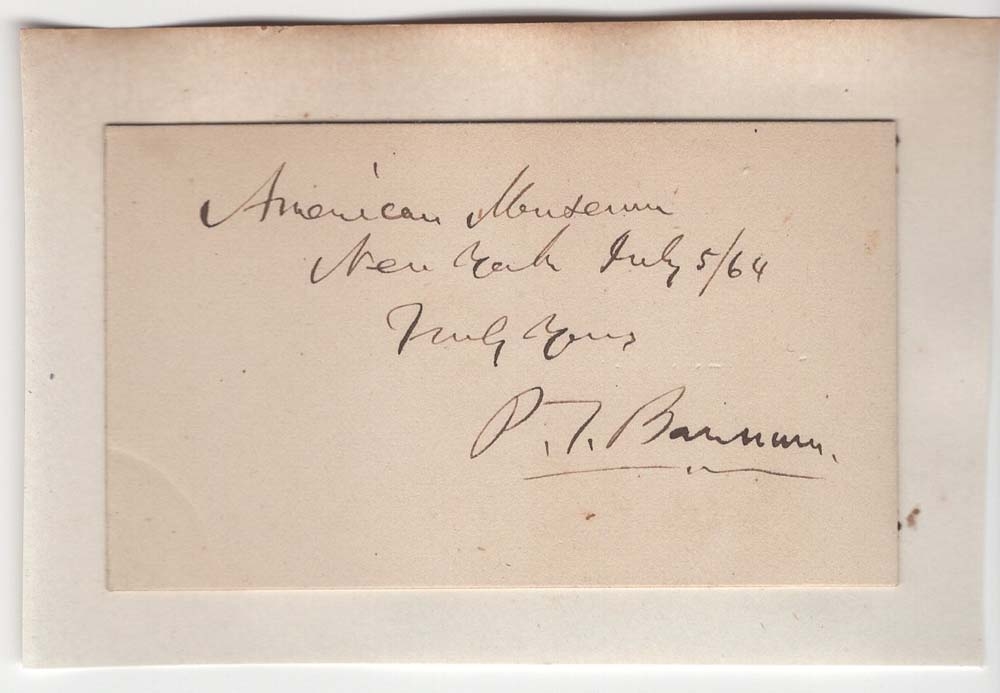 American Museum
New York July 5/64
Truly Yours
P. T. Barnum.